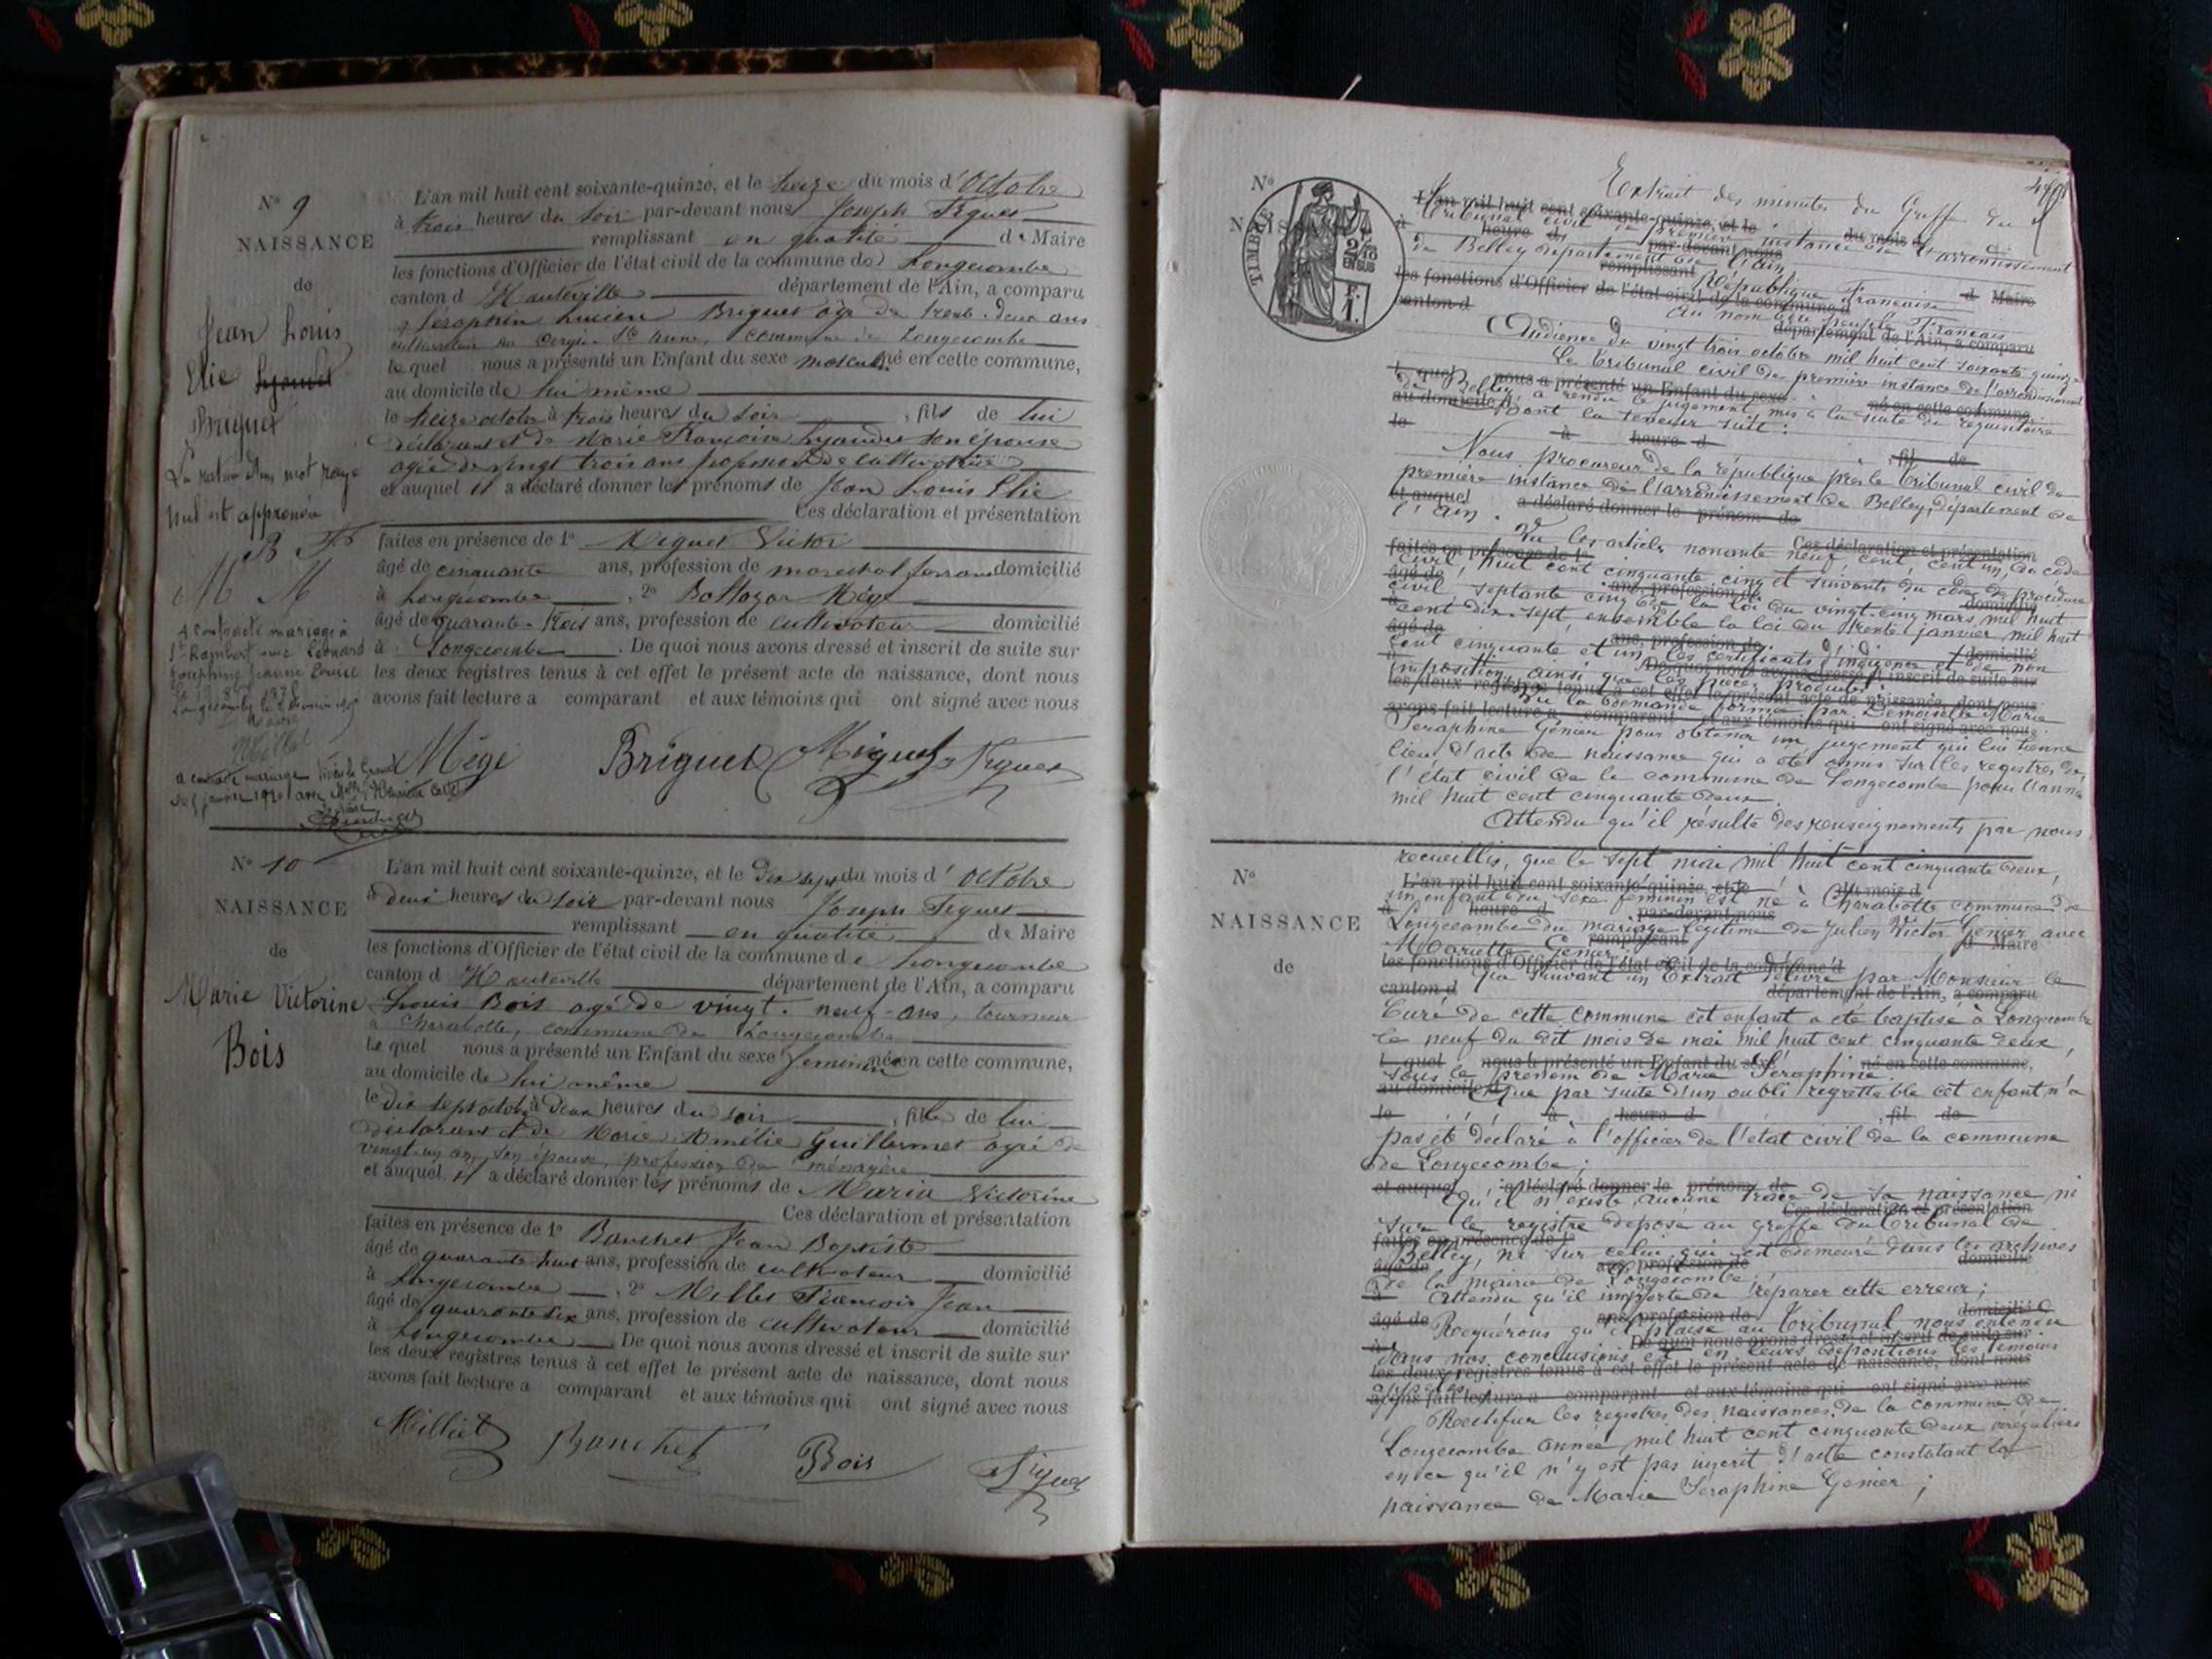 N° 9
NAISSANCE
de
Jean Louis
Elie Lyaudet
Briguet
La rature d'un mot rayé
nul est approuvée
B
M M
A contracté mariage à
St Rambert avec Léonard
Joséphine Jeanne Louise
L'an mil huit cent soixante-quinze, et le treize du mois d'Octobre
à trois heures du soir par-devant nous Joseph
remplissant en qualité de Maire
les fonctions d'Officier de l'état civil de la commune de Longecombe
canton d'Hauteville département de l'Ain, a comparu
Séraphin Lucien Briguet âgé de trente-deux ans
cultivateur au Ste Anne, commune de Longecombe
lequel nous a présenté un Enfant du sexe masculin né en cette commune,
au domicile de lui même
le treize octobre à trois heures du soir , fils de lui
déclarant et de Marie Françoise Lyaudet son épouse
agée de vingt trois ans profession de cultivatrice
et auquel il a déclaré donner les prénoms de Jean Louis Elie
Ces déclaration et présentation
faites en présence de 1° Miguet Victor
âgé de cinquante ans, profession de marechal ferrant domicilié
à Longecombe , 2° Baltazar Mège
âgé de quarante-trois ans, profession de cultivateur domicilié
à Longecombe . De quoi nous avons dressé et inscrit de suite sur
les deux registres tenus à cet effet le présent acte de naissance, dont nous
avons fait lecture a comparant et aux témoins qui ont signé avec nous
Mège Briguet Miguet
N° 10
NAISSANCE
de
Marie Victorine
Bois
L'an mil huit cent soixante-quinze, et le dix sept du mois d'Octobre
à deux heures du soir par-devant nous Joseph
remplissant en qualité de Maire
les fonctions d'Officier de l'état civil de la commune de Longecombe
canton d'Hauteville département de l'Ain, a comparu
Louis Bois agé de vingt-neuf-ans, tourneur
a Charabotte, commune de Longecombe
lequel nous a présenté un Enfant du sexe feminin né en cette commune,
au domicile de lui même
le dix sept octobre à deux heures du soir , fille de lui
déclarant et de Marie Amélie Guillermet agé de
vingt un an, son épouse, profession de ménagère
et auquel il a déclaré donner les prénoms de Maria Victorine
Ces déclaration et présentation
faites en présence de 1° Banchet Jean Baptiste
âgé de quarante huit ans, profession de cultivateur domicilié
à Longecombe , 2° Milliet François Jean
âgé de quarante six ans, profession de cultivateur domicilié
à Longecombe . De quoi nous avons dressé et inscrit de suite sur
les deux registres tenus à cet effet le présent acte de naissance, dont nous
avons fait lecture a comparant et aux témoins qui ont signé avec nous
Milliet Banchet Bois
N°
TIMBRE
2/10
EN SUS
F.
1.
Extrait des minutes du Greffe du
Tribunal civil de première instance de l'arrondissement
de Belley département de l'Ain
République Française
Au nom du peuple Français
Audience du vingt trois octobre mil huit cent soixante quinze
Le tribunal civil de première instance de l'arrondissement
de Belley, a rendu le jugement, mis à la suite du requisitoire
dont la teneur suit :
Nous procureur de la république près le tribunal civil de
première instance de l'arrondissement de Belley, département de
l'Ain.
Vu les articles nonante neuf, cent, cent un, du code
civil, huit cent cinquante cinq et suivants du code de procédure
civil, septante cinq de la loi du vingt-cinq mars, mil huit
cent dix-sept, ensemble la loi du trente janvier, mil huit
cent cinquante et un, les certificats d'indigence et de non
imposition, ainsi que les pièces produites
Vu la demande formée par Demoiselle Marie
Seraphine Génier pour obtenir un jugement qui lui tienne
lieu d'acte de naissance qui a été omis sur les registres de
l'état civil de la commune de Longecombe pour l'année
mil huit cent cinquante deux.
Attendu qu'il résulte des renseignements par nous
recueillis, que le sept mai mil huit cent cinquante deux,
N°
NAISSANCE
de
un enfant du sexe féminin est né à Charabotte commune de
Longecombe du mariage légitime de Julien Victor Génier avec
Mariette Génier
Que suivant un Extrait délivré par Monsieur le
Curé de cette commune cet enfant a été baptisé à Longecombe
le neuf du dit mois de mai mil huit cent cinquante deux,
sous le prénom de Marie Séraphine.
Que par suite d'un oubli regrettable cet enfant n'a
pas été déclaré à l'officier de l'état civil de la commune
de Longecombe ;
Qu'il n'existe aucune trace de sa naissance ni
sur le registre déposé au greffe du tribunal de
Belley, ni sur celui qui est demeuré dans les archives
de la mairie de Longecombe ;
Attendu qu'il importe de réparer cette erreur ;
Requérons qu'il plaise au tribunal nous entendu
dans nos conclusions et en leurs dépositions les témoins
appelés
Rectifier les registres des naissances de la commune de
Longecombe année mil huit cent cinquante deux
en ce qu'il n'y est pas inscrit d'acte constatant la
naissance de Marie Séraphine Génier ;